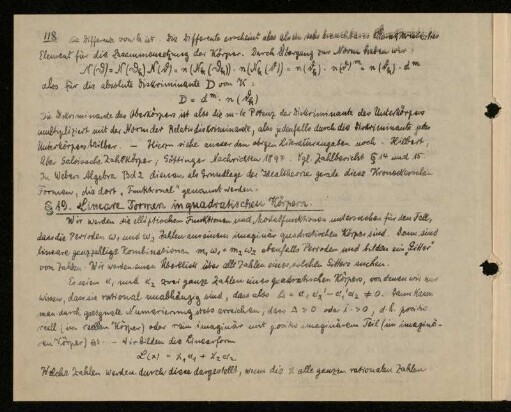 118 die Differente von k ist. Die Differente erscheint also als ein sehr brauchbares
Element für die Zusammensetzung der Körper. Durch Übergang zur Norm haben wir:
also für die absolute Diskriminante D von K:
Die Diskriminante des Oberkörpers ist also die m-te Potenz der Diskriminante des Unterkörpers
multipliziert mit der Norm der Relativdiskriminante, also jedenfalls durch die Diskriminante jedes
Unterkörpers teilbar. — Hierzu siehe ausser den obigen Literaturangaben noch: Hilbert,
Über Galoissche Zahlkörper, Göttinger Nachrichten 1894. Vgl. Zahlbericht § 14 und 15.
In Weber Algebra Bd 2 dienen als Grundlage der Idealtheorie gerade diese Kroneckerschen
Formen, die dort „Funktional" genannt werden.
§ 19. Lineare Formen in quadratischen Körpern.
Wir werden die elliptischen Funktionen und Modulfunktionen untersuchen für den Fall,
dass die Perioden ω₁ und ω₂ Zahlen aus einem imaginär quadratischen Körper sind. Dann sind
lineare ganzzahlige Kombinationen m₁ω₁ + m₂ω₂ ebenfalls Perioden und bilden ein „Gitter"
von Zahlen. Wir werden einen Überblick über alle Zahlen eines solchen Gitters suchen.
Es seien α₁ und α₂ zwei ganze Zahlen eines quadratischen Körpers, von denen wir nur
wissen, dass sie rational unabhängig sind, dass also Δ = α₁α₂' - α₁'α₂ ≠ 0. Dann kann
man durch geeignete Numerierung stets erreichen, dass Δ > 0 oder i·> 0, d.h. positiv
reell (im reellen Körper) oder rein imaginär mit positiv imaginärem Teil (im imaginä-
ren Körper) ist. — Wir bilden die Linearform
L(x) = x₁α₁ + x₂α₂
Welche Zahlen werden durch diese dargestellt, wenn die x alle ganzen rationalen Zahlen